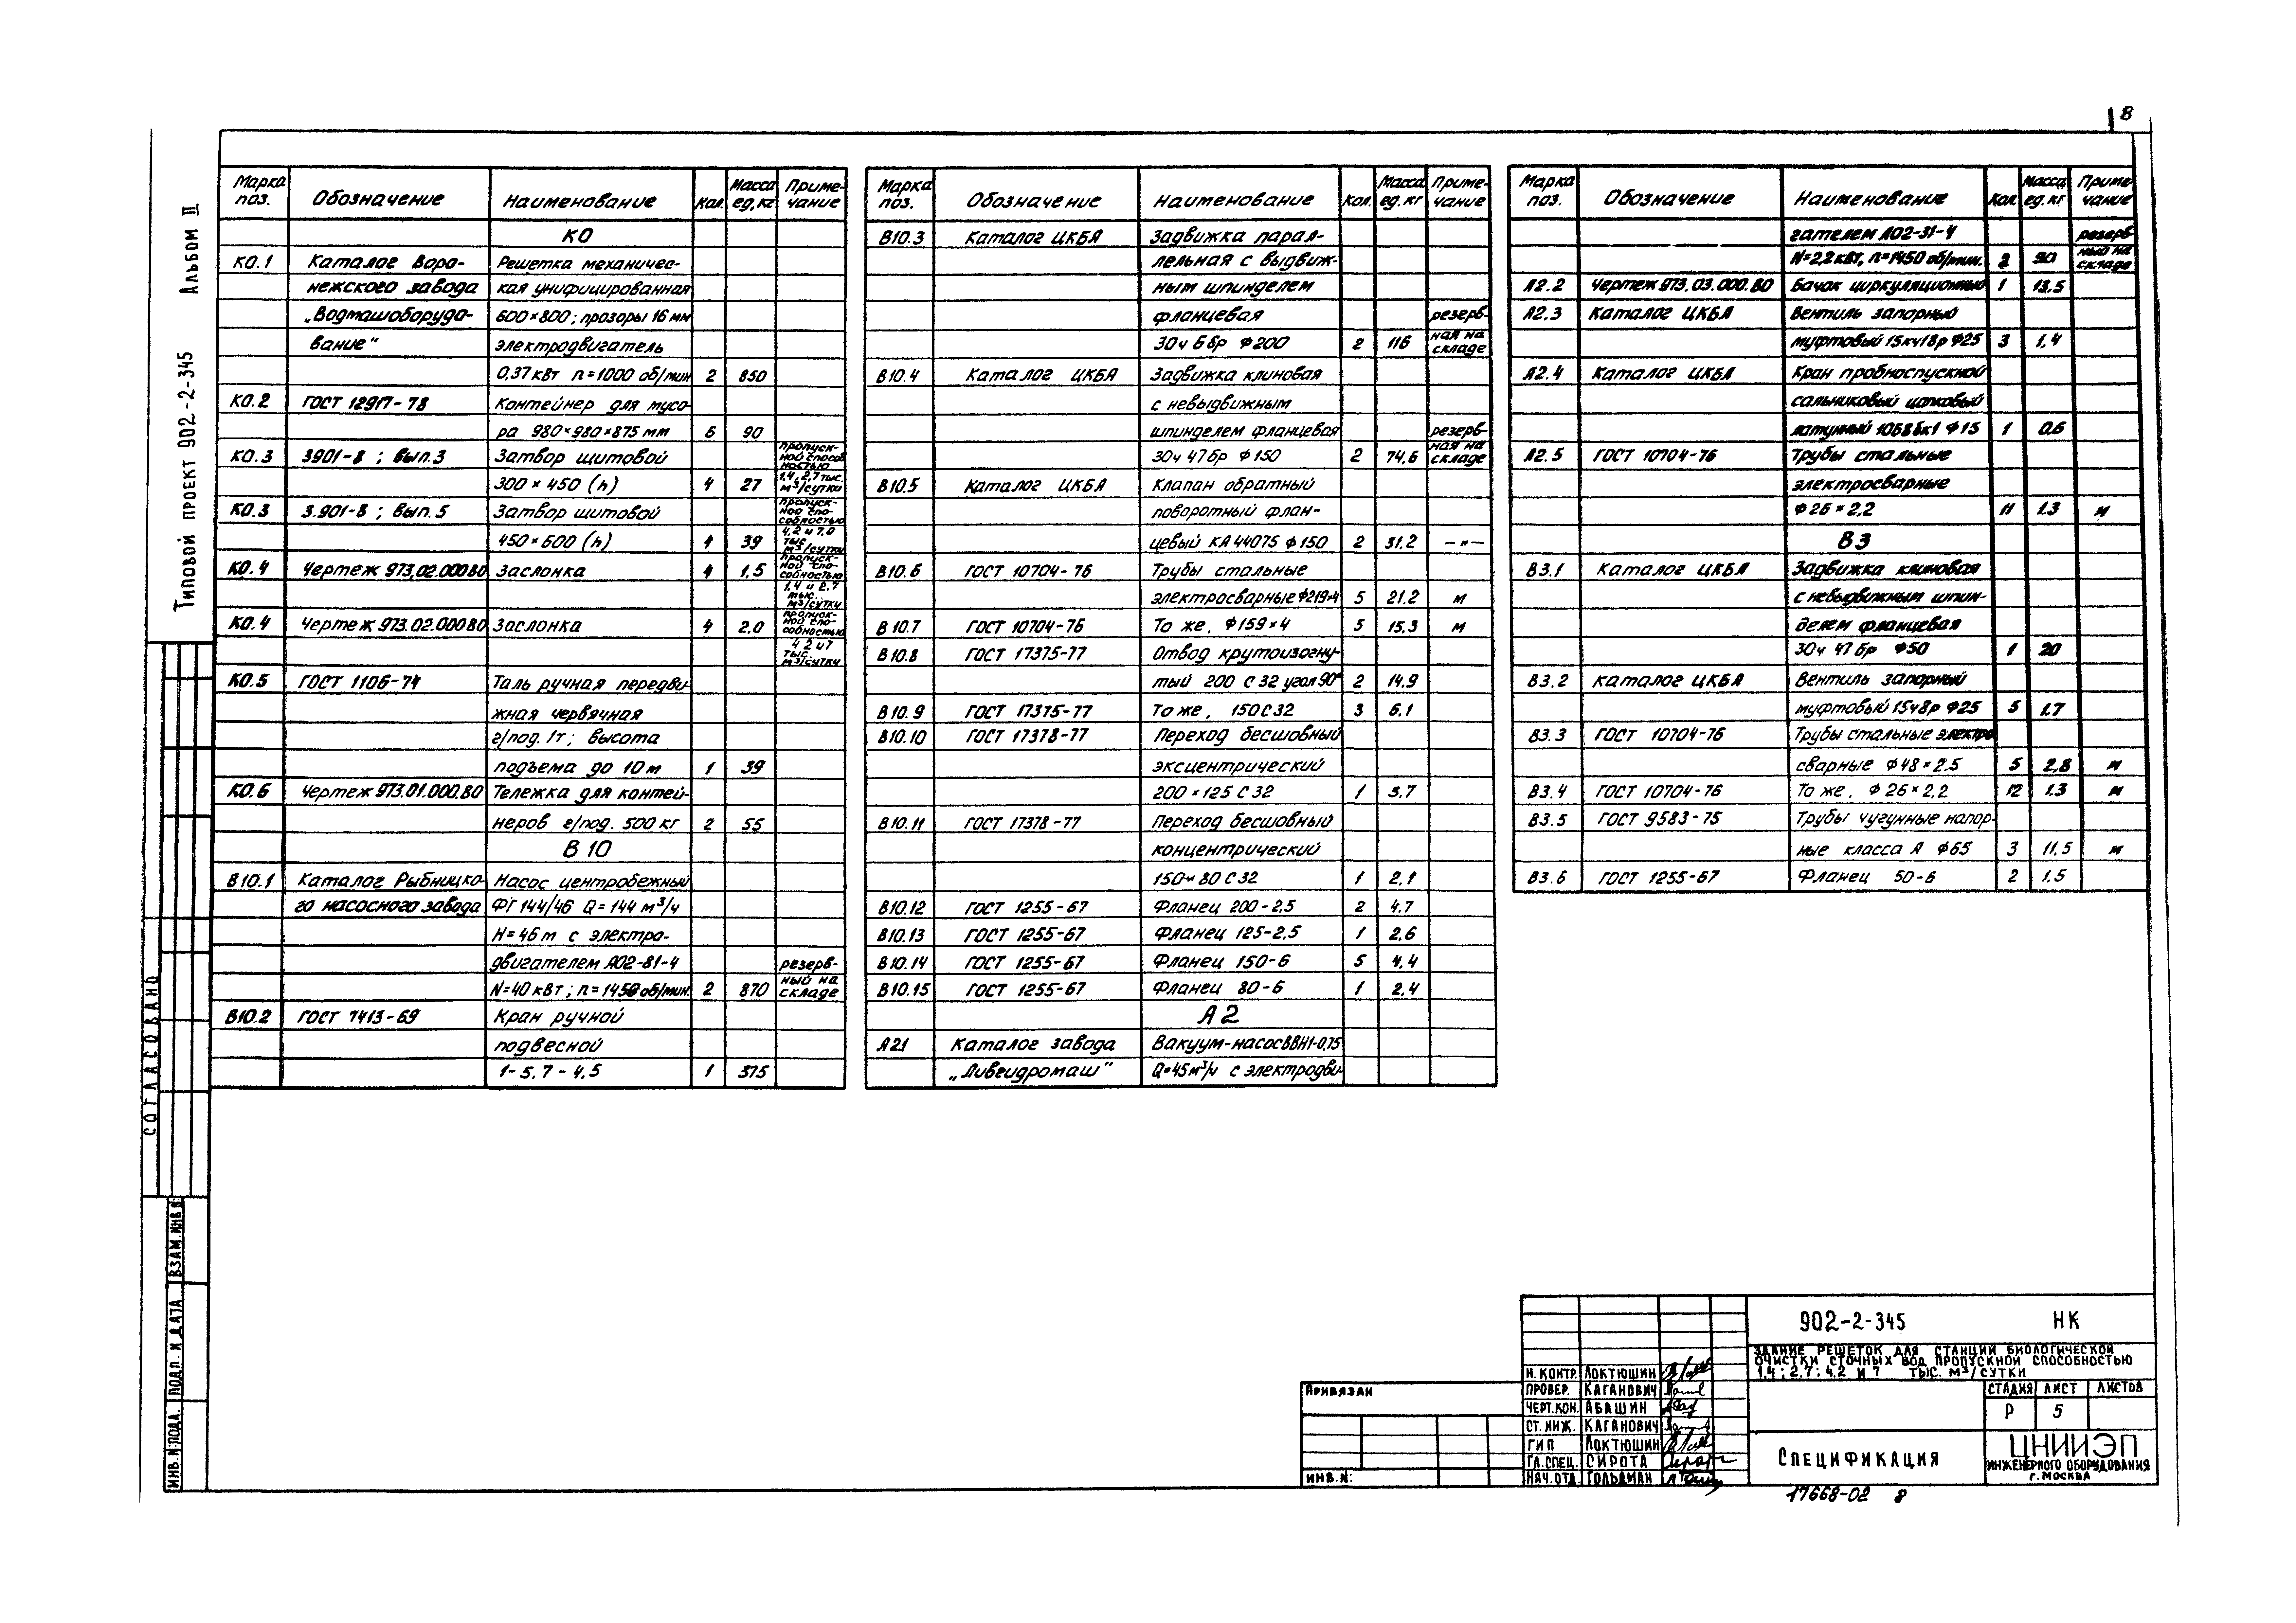 8
Типовой проект 902-2-345 Альбом II
Марка поз. Обозначение Наименование Кол. Масса ед, кг Приме-чание
КО
КО.1 Каталог Воро- Решетка механичес-
нежского завода кая унифицированная
„Водмашоборудо- 600×800; прозоры 16 мм
вание" электродвигатель
0,37 кВт n=1000 об/мин 2 850
КО.2 ГОСТ 12917-78 Контейнер для мусо-
ра 980×980×875 мм 6 90
КО.3 3901-8 ; вып.3 Затвор щитовой пропуск-ной способ ностью
300 × 450 (h) 4 27 1,4, 2,7 тыс. м³/сутки
КО.3 3.901-8 ; вып.5 Затвор щитовой пропуск-ной спо-собностью
450×600 (h) 4 39 4,2 и 7,0 тыс. м³/сутки
КО.4 Чертеж 973.02.000 ВО Заслонка 4 1,5 пропуск-ной спо-собностью
1,4 и 2,7 тыс. м³/сутки
КО.4 Чертеж 973.02.000 ВО Заслонка 4 2,0 пропуск-ной спо-собностью
4 2 и 7 тыс. м³/сутки
КО.5 ГОСТ 1106-74 Таль ручная передви-
жная червячная
г/под. 1т; высота
подъема до 10м 1 39
КО.6 Чертеж 973.01.000.ВО Тележка для контей-
неров г/под. 500 кг 2 55
В 10
В10.1 Каталог Рыбницко- Насос центробежный
го насосного завода ФГ 144/46 Q=144 м³/ч
Н=46 м с электро-
двигателем АО2-81-4 резерв-
N=40 кВт; n=1450 об/мин. 2 870 ный на складе
В10.2 ГОСТ 7413-69 Кран ручной
подвесной
1-5,7-4,5 1 375
Марка поз. Обозначение Наименование Кол. Масса ед. кг Приме-чание
В10.3 Каталог ЦКБА Задвижка парал-
лельная с выдвиж-
ным шпинделем
фланцевая резерв-
30ч 6бр Ф200 2 116 ная на складе
В10.4 Каталог ЦКБА Задвижка клиновая
с невыдвижным
шпинделем фланцевая резерв-
30ч 47бр Ф150 2 74,6 ная на складе
В10.5 Каталог ЦКБА Клапан обратный
поворотный флан-
цевый КА 44075 Ф150 2 31.2 —"—
В10.6 ГОСТ 10704-76 Трубы стальные
электросварные Ф219×4 5 21.2 м
В 10.7 ГОСТ 10704-76 То же, Ф159×4 5 15,3 м
В10.8 ГОСТ 17375-77 Отвод крутоизогну-
тый 200 С 32 угол 90° 2 14,9
В10.9 ГОСТ 17375-77 То же, 150С32 3 6.1
В10.10 ГОСТ 17378-77 Переход бесшовный
эксцентрический
200×125 С 32 1 3.7
В10.11 ГОСТ 17378-77 Переход бесшовный
концентрический
150×80 С 32 1 2,1
В10.12 ГОСТ 1255-67 Фланец 200-2,5 2 4.7
В10.13 ГОСТ 1255-67 Фланец 125-2,5 1 2,6
В10.14 ГОСТ 1255-67 Фланец 150-6 5 4.4
В10.15 ГОСТ 1255-67 Фланец 80-6 1 2,4
А2
А2.1 Каталог завода Вакуум-насос ВВН1-0,75
„Ливгидромаш" Q=45 м³/ч с электродви-
Марка поз. Обозначение Наименование Кол. Масса ед. кг Приме-чание
гателем АО2-31-4 резерв-
N=2,2 кВт, n=1450 об/мин. 2 90 ный на складе
А2.2 Чертеж 973.03.000.ВО Бачок циркуляционный 1 13,5
А2.3 Каталог ЦКБА Вентиль запорный
муфтовый 15кч18р Ф25 3 1,4
А2.4 Каталог ЦКБА Кран пробноспускной
сальниковый цапковый
латунный 10Б8бк1 Ф15 1 0.6
А2.5 ГОСТ 10704-76 Трубы стальные
электросварные
Ф26×2,2 11 1.3 м
В3
В3.1 Каталог ЦКБА Задвижка клиновая
с невыдвижным шпин-
делем фланцевая
30ч 47бр Ф50 1 20
В3.2 Каталог ЦКБА Вентиль запорный
муфтовый 15ч8р Ф25 5 1.7
В3.3 ГОСТ 10704-76 Трубы стальные электро
сварные Ф48×2.5 5 2,8 м
В3.4 ГОСТ 10704-76 То же, Ф26×2,2 12 1.3 м
В3.5 ГОСТ 9583-75 Трубы чугунные напор-
ные класса А Ф65 3 11,5 м
В3.6 ГОСТ 1255-67 Фланец 50-6 2 1,5
СОГЛАСОВАНО
ИНВ.N:ПОДЛ. ПОДП. И ДАТА ВЗАМ.ИНВ.N:
Привязан
ИНВ.N:
Н.КОНТР. ЛОКТЮШИН
ПРОВЕР. КАГАНОВИЧ
ЧЕРТ.КОН. АБАШИН
СТ.ИНЖ. КАГАНОВИЧ
ГИП ЛОКТЮШИН
ГЛ.СПЕЦ. СИРОТА
НАЧ.ОТД ГОЛЬДМАН
902-2-345 НК
ЗДАНИЕ РЕШЕТОК ДЛЯ СТАНЦИЙ БИОЛОГИЧЕСКОЙ
ОЧИСТКИ СТОЧНЫХ ВОД ПРОПУСКНОЙ СПОСОБНОСТЬЮ
1,4; 2,7; 4,2 и 7 ТЫС. М³/СУТКИ
СТАДИЯ ЛИСТ ЛИСТОВ
Р 5
СПЕЦИФИКАЦИЯ
ЦНИИЭП
ИНЖЕНЕРНОГО ОБОРУДОВАНИЯ
Г. МОСКВА
17668-02 8